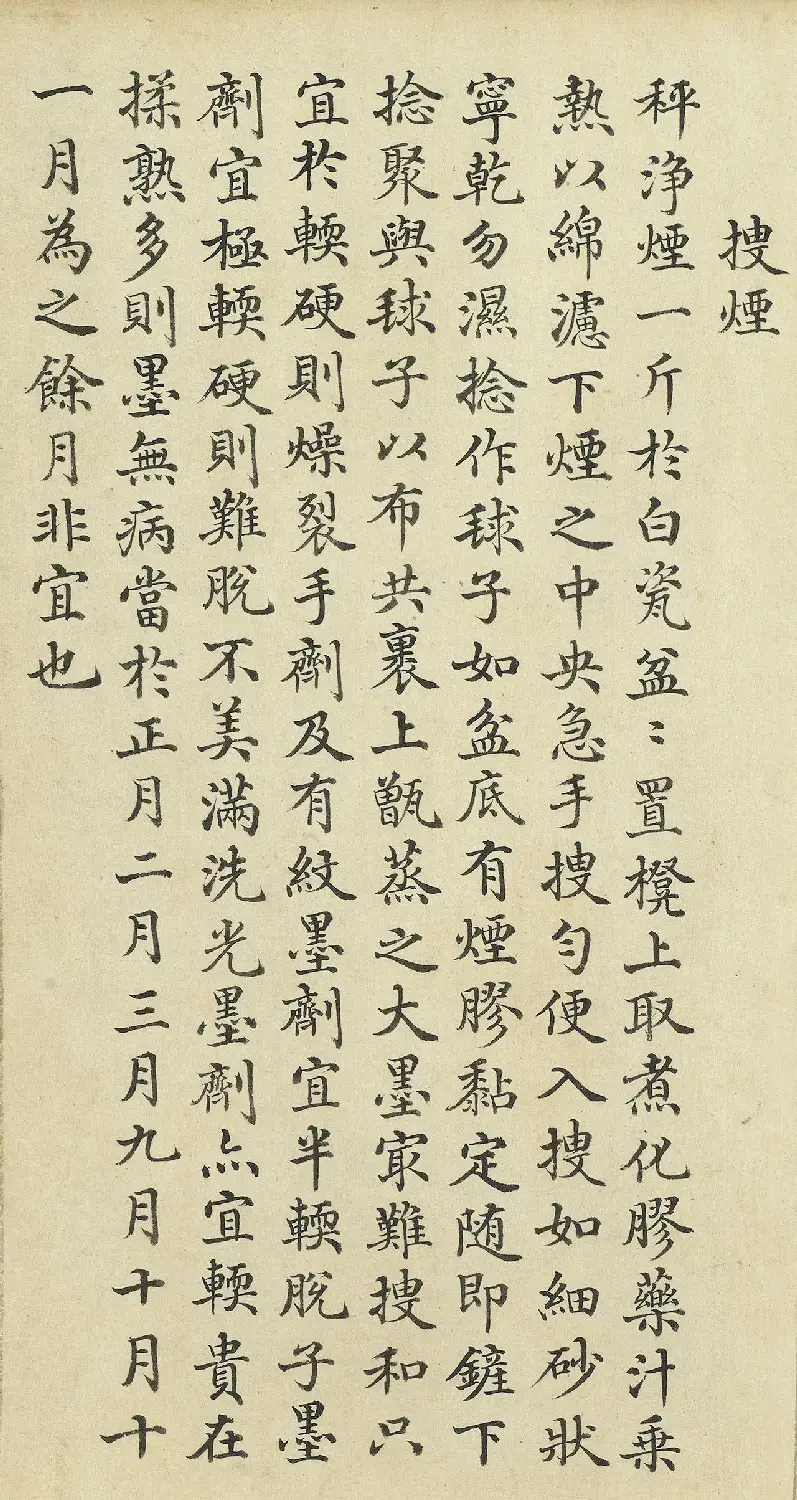 搜煙
秤淨煙一斤於白瓷盆〻置櫈上取煮化膠藥汁乗
熱以綿濾下煙之中央急手搜匀便入搜如細砂狀
寧乾勿濕捻作毬子如盆底有煙膠黏定随即鏟下
捻聚與毬子以布共裹上甑蒸之大墨㝡難搜和只
宜於輭硬則燥裂手劑及有紋墨劑宜半輭脫子墨
劑宜極輭硬則難脫不美滿洗光墨劑亦宜輭貴在
揉熟多則墨無病當於正月二月三月九月十月十
一月為之餘月非宜也